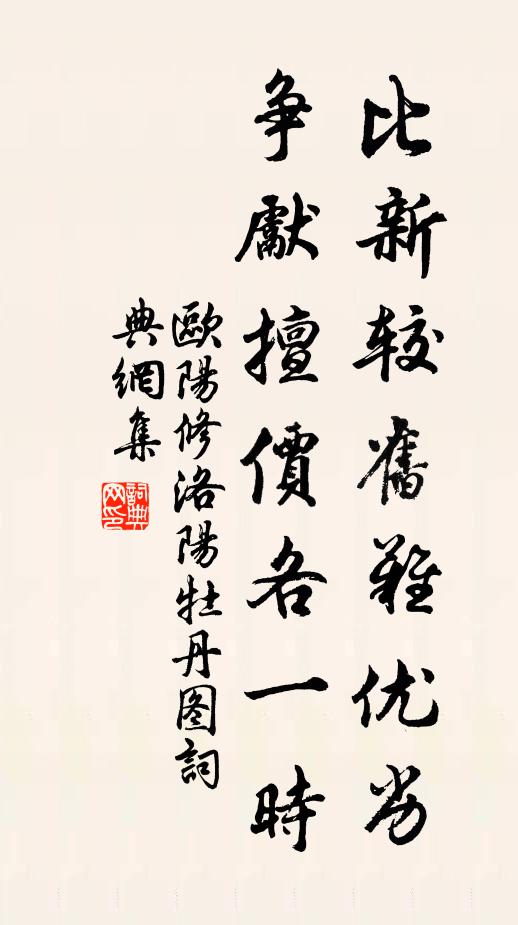 比新较舊難优劣
争獻擅價各一時
歐陽修洛陽牡丹图詞
典網集
詞典网印